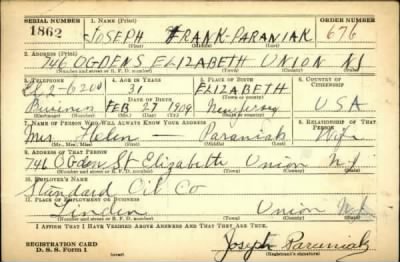 SERIAL NUMBER 1. NAME (Print) ORDER NUMBER
1862 JOSEPH FRANK-PARANIAK 676
(First) (Middle) (Last)
2. ADDRESS (Print)
746 OGDENS ELIZABETH UNION NJ
(Number and street or R. F. D. number) (Town) (County) (State)
3. TELEPHONE 4. AGE IN YEARS 5. PLACE OF BIRTH 6. COUNTRY OF CITIZENSHIP
El 2-6200 31 ELIZABETH
DATE OF BIRTH (Town or county)
Business FEB 27 1909 New Jersey USA
(Mo.) (Day) (Yr.) (State or country)
7. NAME OF PERSON WHO WILL ALWAYS KNOW YOUR ADDRESS 8. RELATIONSHIP OF THAT PERSON
Mrs Helen - Paraniak Wife
(Mr., Mrs., Miss) (First) (Middle) (Last)
9. ADDRESS OF THAT PERSON
746 Ogden St Elizabeth Union N.J.
(Number and street or R. F. D. number) (Town) (County) (State)
10. EMPLOYER'S NAME
Standard Oil Co
11. PLACE OF EMPLOYMENT OR BUSINESS
Linden Union
(Number and street or R. F. D. number) (Town) (County) (State)
I AFFIRM THAT I HAVE VERIFIED ABOVE ANSWERS AND THAT THEY ARE TRUE.
REGISTRATION CARD
D. S. S. Form 1 (over) Joseph Paraniak
(Registrant's signature)